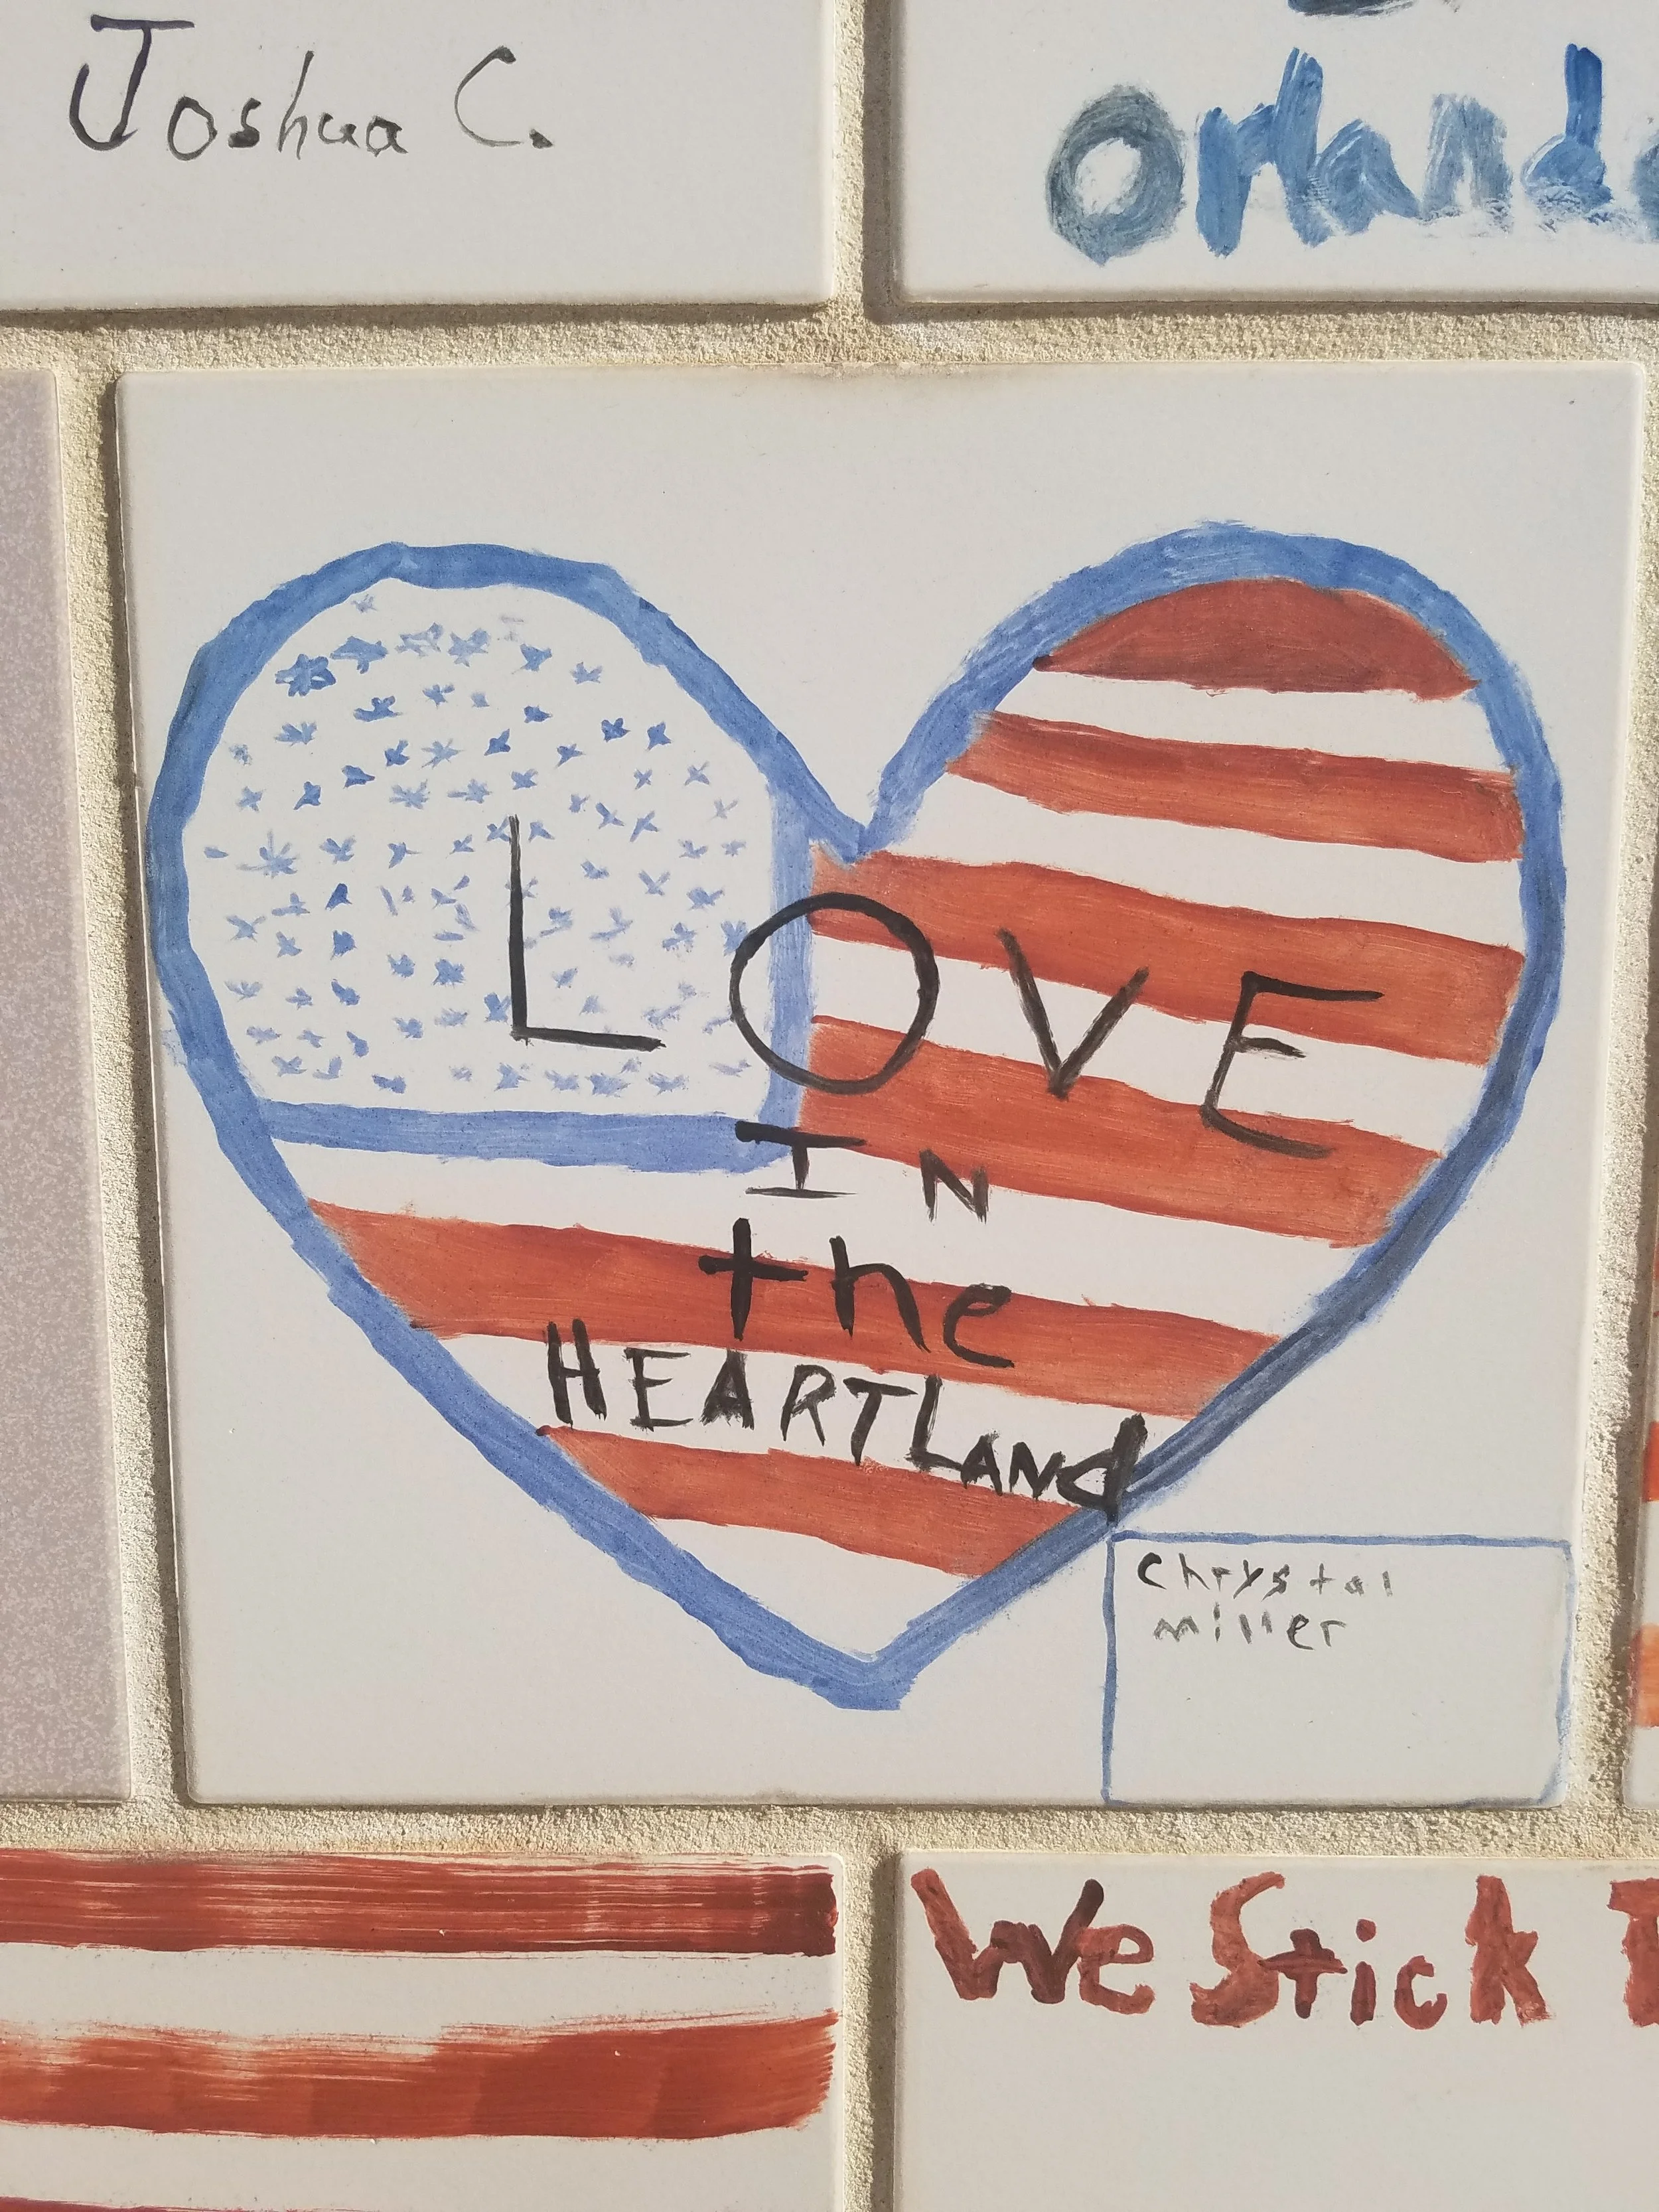 Joshua C.
Orlando
LOVE
IN
the
HEARTLANd
Chrystal
miller
We Stick